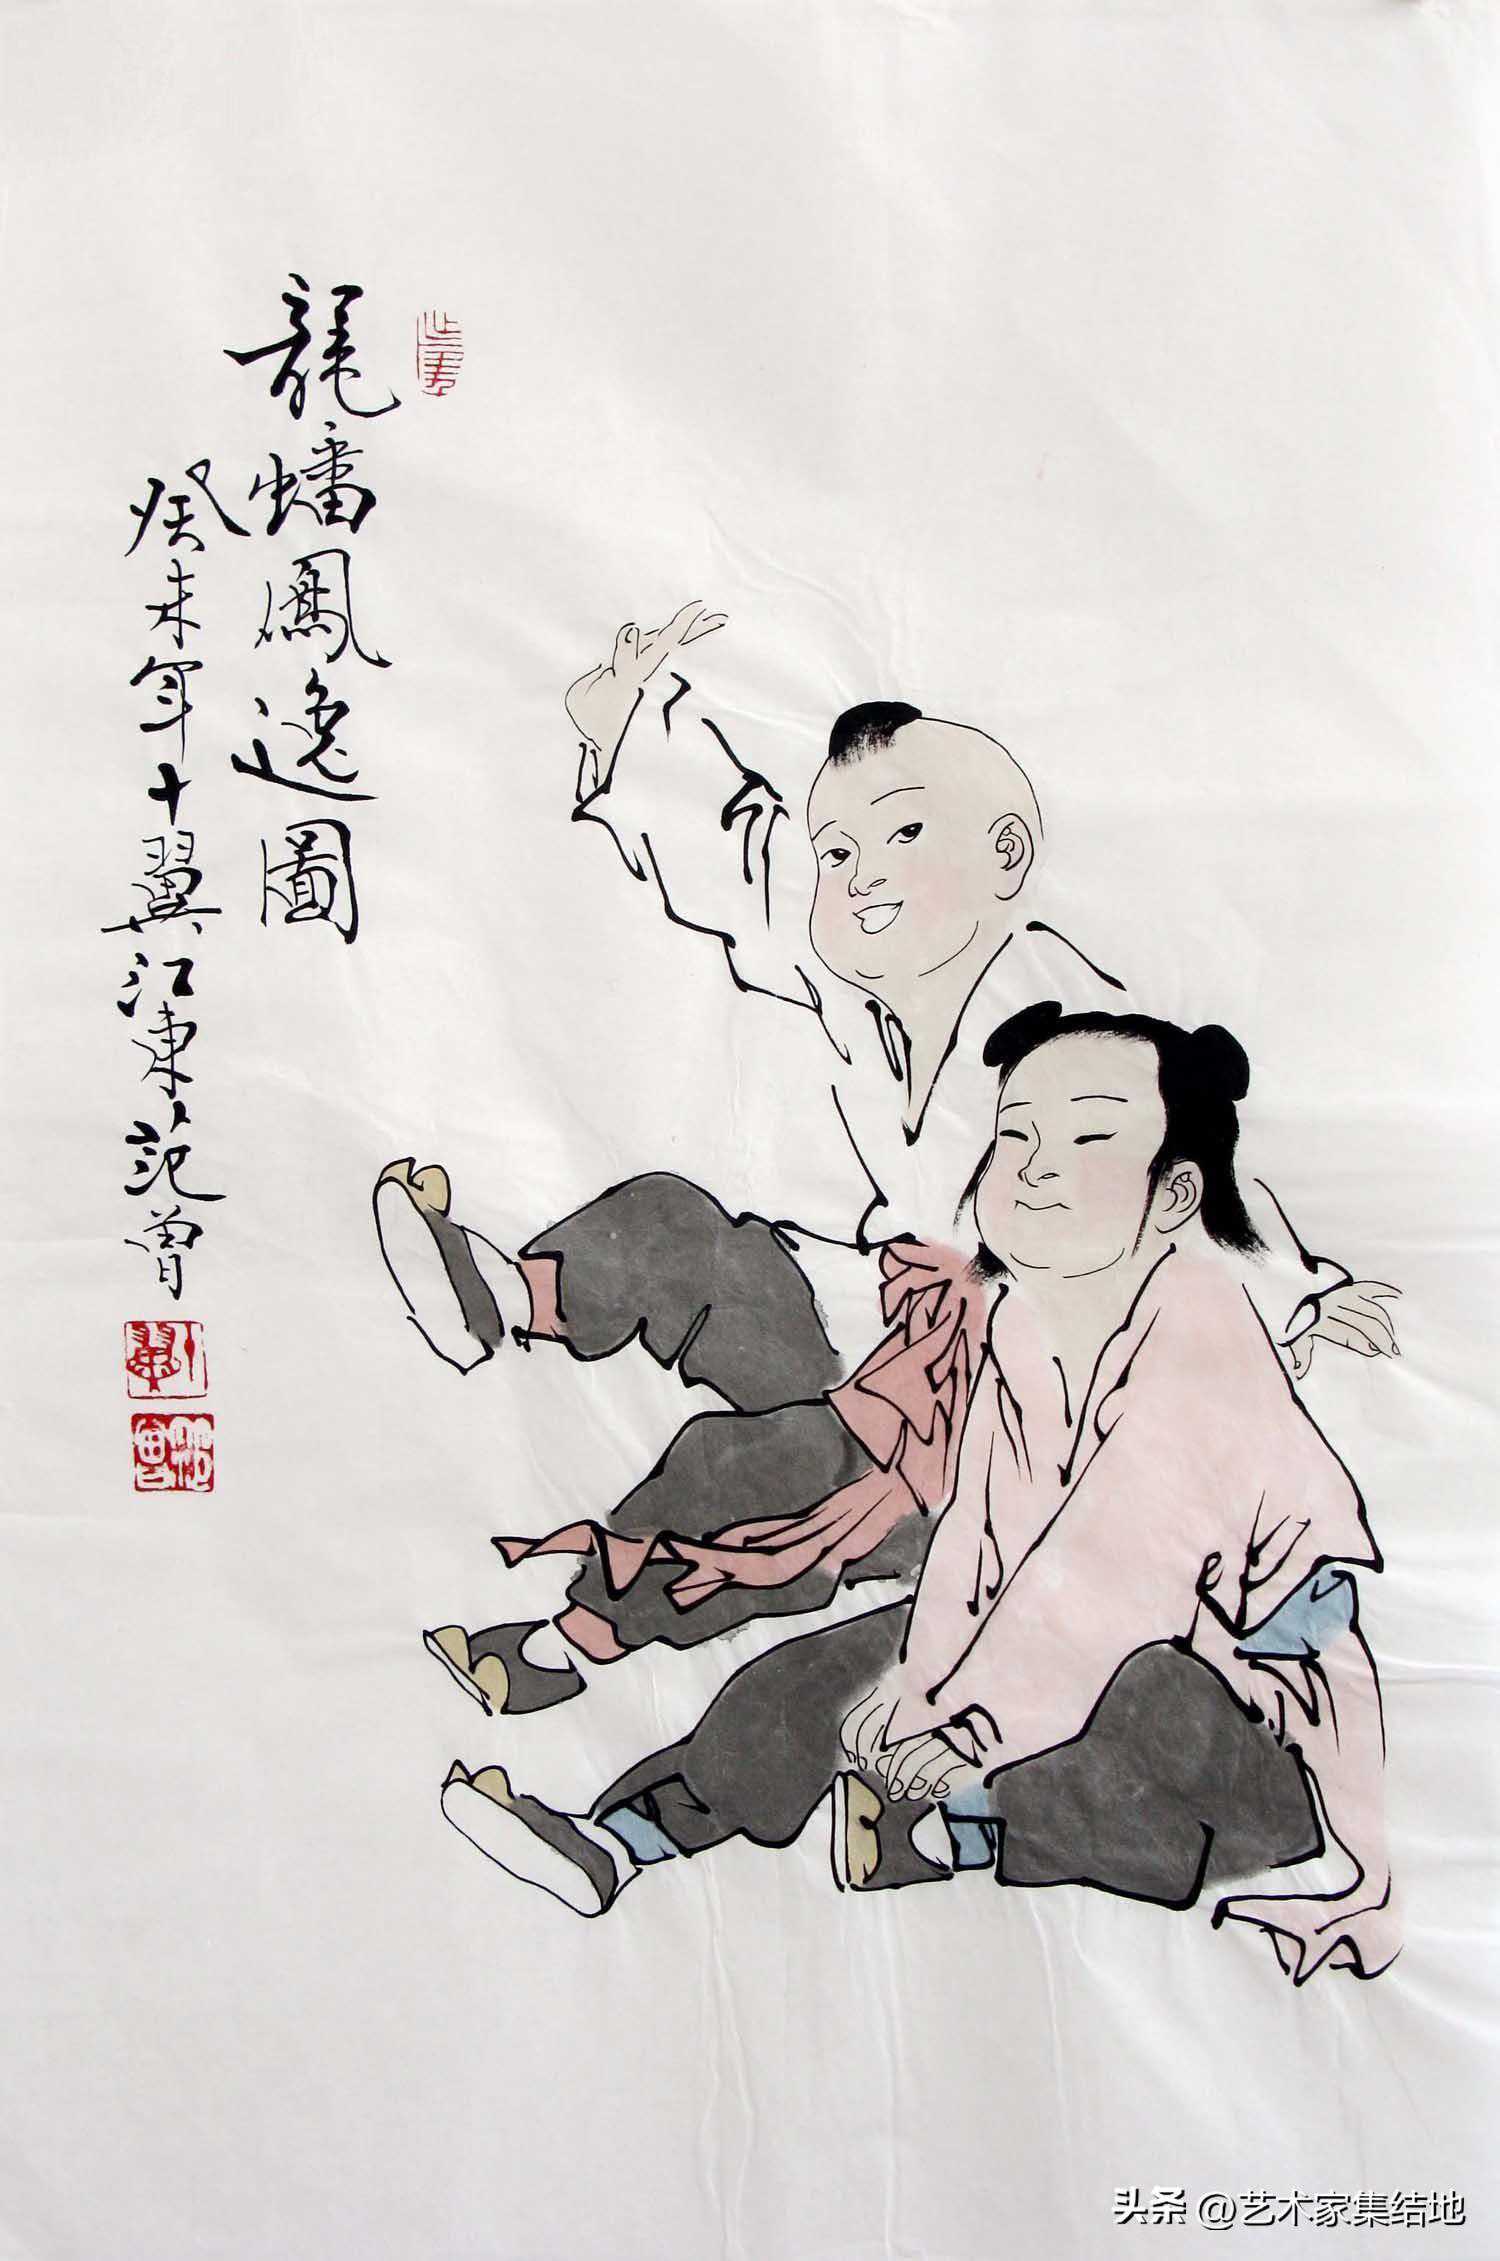 龍蟠鳳逸圖
癸未年十翼江東范曾
十翼
范曾
头条 @艺术家集结地